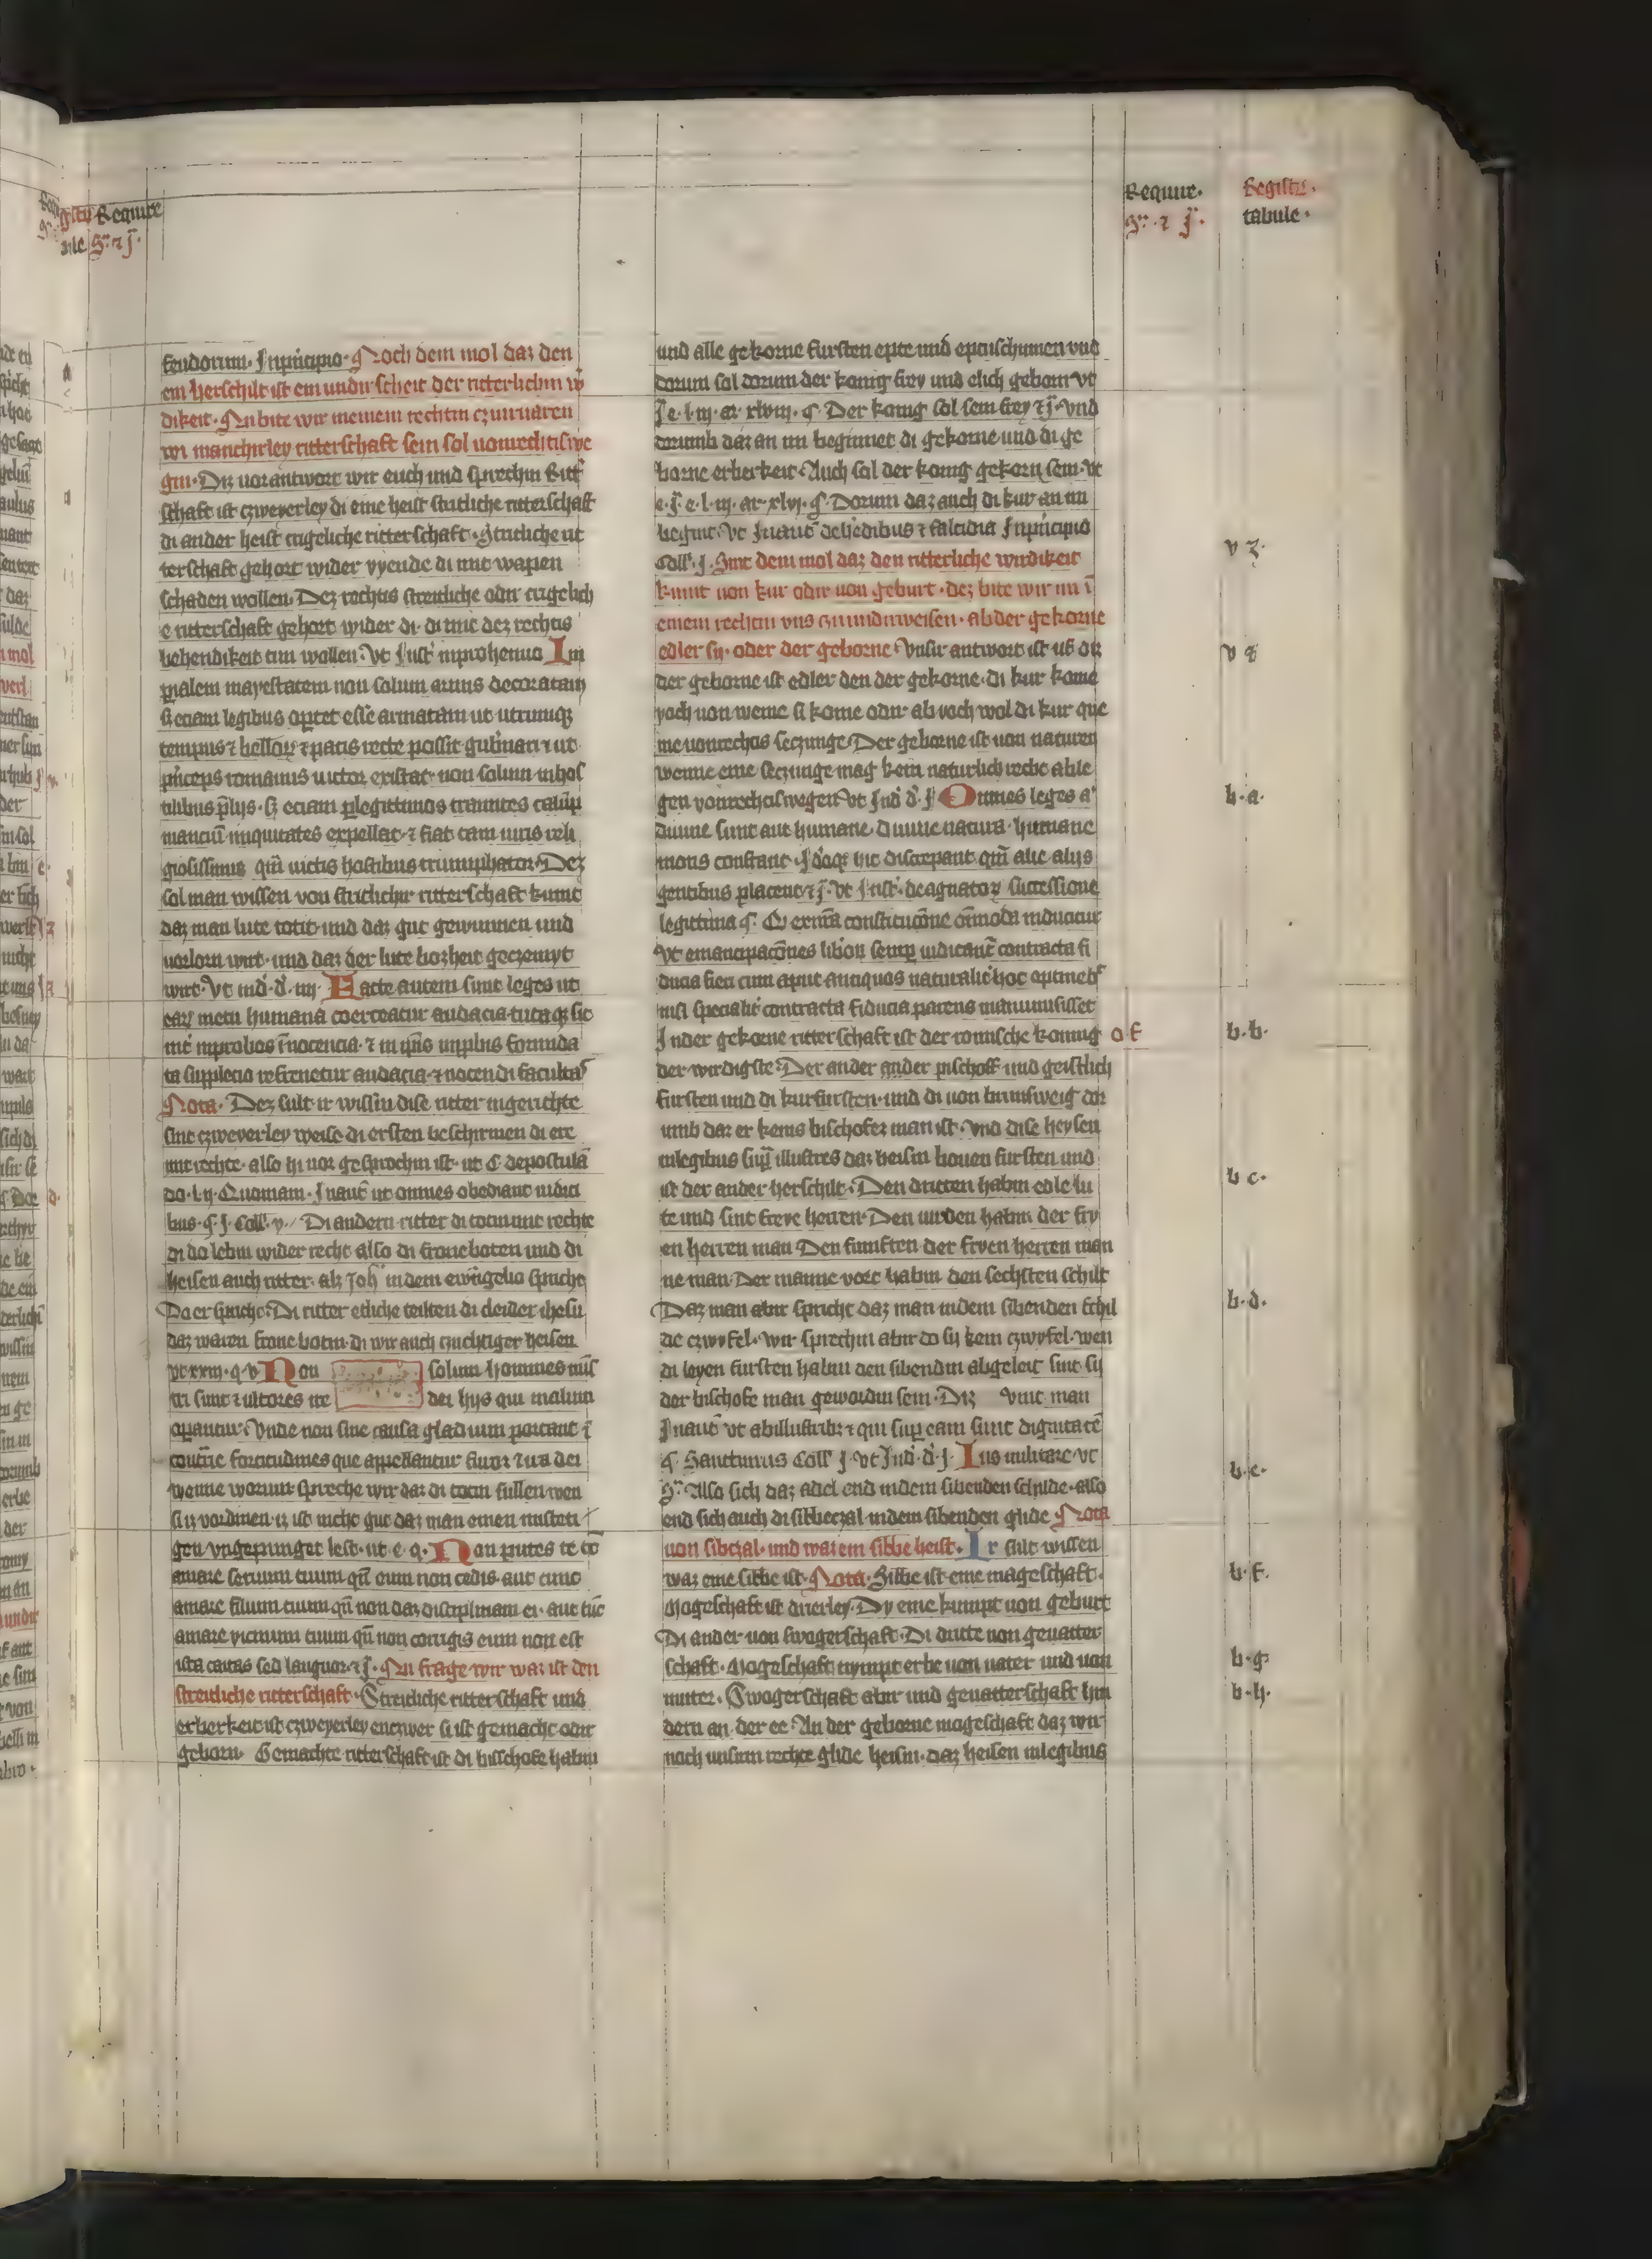 Require· Registrum·
Sͬ· ⁊ J̄· tabule·
feudorum· Jnprincipio· Noch dem mol daz den
ein herschilt ist ein undirscheit der ritterlichin wir
dikeit· Nu bite wir meinem rechtin czuirvaren
wi manchirley ritterschaft sein sol vonrechtiswe
gin· Diz uorantwort wir euch und sprechin Ritt
schaft ist czweyerley di eine heist stritliche ritterschaft
di ander heist tugeliche ritterschaft· Stritliche rit
terschaft gehort wider vyende di mit wapen
schaden wollen· Dez rechtis streitliche odir tugelich
e ritterschaft gehort wider di· di mit dez rechtis
behendikeit tun wollen· Vt Jnst̄ inprohemio Im
perialem mayestatem non solum armis decoratam
s̄ eciam legibus oportet esse armatam ut utrumqz
tempus ⁊ belloꝝ ⁊ pacis recte possit gubernari ⁊ ut
princeps romanus uictor existat· non solum inhos
tilibus p̄lijs· s̄ eciam p legittimos tramites calūp
manciū iniquitates expellat· ⁊ fiat tam iuris reli
giosissimus qm̄ uictis hostibus triumphator· Dez
sol man wissen von stritlichir ritterschaft kumt
daz man lute totit· und daz gut gewunnen und
uorlorn wirt· und daz der lute bozheit geczemyt
wirt· Vt ind̄· d̄· iiij· Facte autem sunt leges ut
earꝝ metu humana coerceatur audacia· tutaqz sic
int̄ inprobos īnocencia· ⁊ in ip̄is inprobis formida
to supplicio refrenetur audacia· ⁊ nocendi facultas
Nota· Dez sult ir wissin dise ritter ingerichte
sint czweyerley weise· di ersten beschirmen di ere
mit rechte· also hi uor gesprochin ist· ut C· depostulā
do· l· ij· Quoniam· Jnaut̄ ut omnes obediant iudici
bus· §· j· Coll̄· v· Di andern ritter di totin mit rechte
di do lebin wider recht· also di froneboten und di
heisen auch ritter· alz Joh̄ indem ewāgelio spricht
Do er spricht· Di ritter etliche teilten di cleider ihesu
daz waren frone botin· di wir auch czuchtiger heisen
vt xxiij· q· v· Non solum homines mīs
tri sunt ⁊ ultores ire dei hijs qui malum
operantur· Vnde non sine causa gladium portant ⁊
contrarie fortitudines que appellantur furor ⁊ ira dei
wenne worumb spreche wir daz di totin sullen wen
si iz vordinen· iz ist nicht gut daz man einen misteti
gen ungepiniget lest· ut e· q· Non putes te tc̄
amare seruum tuum qn̄ eum non cedis· aut tunc
amare filium tuum qn̄ non das disciplinam ei· aut tūc
amare vicinum tuum qn̄ non corrigis eum non est
ista caritas sed languor· ⁊ J̄· Nu frage wir waz ist den
streitliche ritterschaft· Streitliche ritterschaft und
erberkeit ist czweyerley entzwer si ist gemacht odir
geborn· Gemachte ritterschaft ist di bisschofe habin
und alle gekorne fursten epte und epteischinnen vnd
dorum sol dorum der konig frey und elich geborn vt
J̄· e· l· iij· ar· xlviij· §· Der konig sol sein frey ⁊ J̄· Vnd
dorumb daz an im beginnet di gekorne und di ge
borne erberkeit· Auch sol der konig gekorn sein· vt
e· J̄· e· l· iij· ar· xlvj· §· Dorum daz auch di kur an im
begint· Vt Jnaut̄ dehēdibus ⁊ falcidia Jnprincipio
Coll̄· j· Sint dem mol daz den ritterliche wirdikeit
kumt uon kur odir uon geburt· dez bite wir im ī
einem rechten vns czuundirweisen· ab der gekorne
edler sij· oder der geborne· Vnsir antwort ist uf dit
der geborne ist edler den der gekorne· di kur kome
yoch uon weme si kome odir· ab yoch wol di kur que
me uonrechtis seczunge· Der geborne ist uon naturen
wenne eine seczunge mag kein naturlich recht able
gen vonrechtiswegen· Vt Jnd̄· d̄· J· Omnes leges a͛
diuine sunt aut humane· diuine natura· humane
moris constant· Jdeoqz hic discrepant qm̄ alie alijs
gentibus placent ⁊ J̄· Vt Jnst̄· deagnatoꝝ successione
legittima §· Cȳ extrā constitucōne om̄oda inducitur
Vt emancipacōnes libōꝝ semꝑ uideant̄ contracta fi
ducia fieri cum aput antiquos naturalit̄ hoc optineb̄
nisi specialit̄ contracta fiducia parens manumisisset
Jnder gekorne ritterschaft ist der romische konnig o f
der wirdigste· Der ander ander pischoff und geistlich
fursten und di kurfursten· und di uon brunsweig dor
umb daz er keins bischofez man ist· Vnd dise heysen
inlegibus sup̄ illustres daz heisin houen fursten und
ist der ander herschilt· Den dritten habin edele lu
te und sint freye herren· Den uirden habin der fry
en herren man· Den funften der fryen herren man
ne man· Der manne vort habin den sechsten schilt
Daz man abir spricht daz man indem sibenden schil
de czwifel· wir sprechin abir do sij kein czwyfel· wen
di leyen fursten habin den sibendin abgeleit sint sij
der bischofe man gewordin sein· Diz vint man
Jnaut̄ vt abillustribꝫ ⁊ qui sup̄ eam sunt dignitatē
§· Sanctimus Coll̄ J· vt Jnd̄· d̄· j· Ius militare· vt
Sͬ· Also sich daz adel end indem sibenden schilde· also
end sich auch di sibbeczal indem sibenden glide Nota
uon sibczal· und waz ein sibbe heist· Ir sult wissen
waz eine sibbe ist· Nota· Sibbe ist eine mageschaft·
Mogeschaft ist drierley· Dy eine kumpt uon geburt
Di ander uon swogerschaft· Di dritte uon geuatter
schaft· Mogeschaft nympt erbe uon uater und uon
muter· Swogerschaft abir und geuatterschaft hin
dern an der ee· An der geborne mogeschaft daz wir
noch unsirm rechte glide heisin· daz heisen inlegibus
v z·
v ⁊
b·a·
b·b·
b c·
b·d·
b·e·
b·f·
b·g·
b·h·